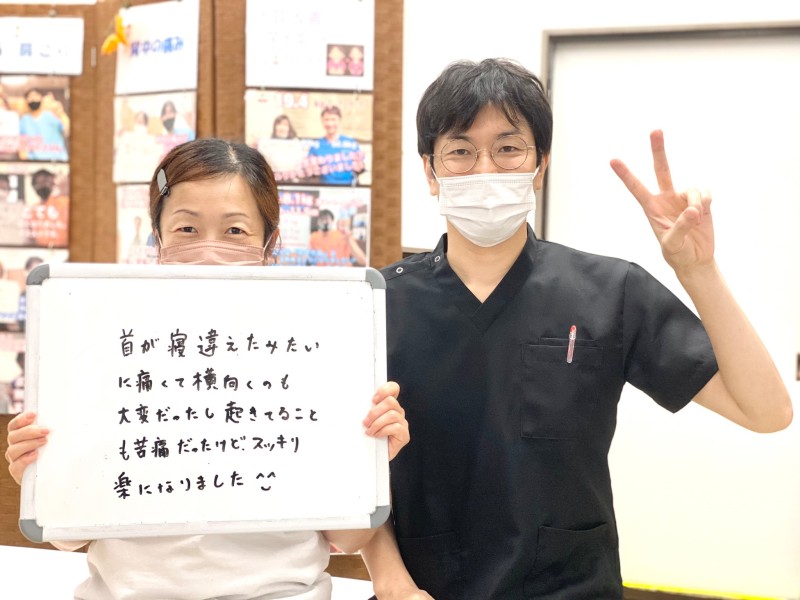 背中の痛み
19.4
首が寝違えたみたい
に痛くて横向くのも
大変だったし起きてること
も苦痛だったけど、スッキリ
楽になりました ^^